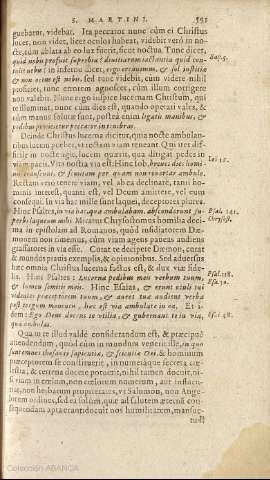 S. MARTINI. 591
guebatur, videbat. Ita peccator nunc cùm ei Christus
lucet, non videt, licet oculos habeat, videbit verò in no-
cte, cùm ablata ob lux fuerit, sicut noctua. Tunc dicet,
quid nobis profuit superbia? divitiarum iactantia quid con-
tulit nobis? in inferno dicet, ergo erravimus, & sol iustitiæ
& non ortus est nobis. sed tunc videbit, cùm videre nihil
proficiet, tunc errorem agnoscet, cùm illum corrigere
non valebit. Nunc ergo suspice lucernam Christum, qui
te illuminat, nunc cùm dies est, quando operari vales, &
cùm manus solutæ sunt, postea enim ligatis manibus, &
pedibus proiicietur peccator in tenebras.
Deinde Christus lucerna dicitur, quia nocte ambulan-
tibus lucem præbet, vt rectam viam teneant. Qui iter dif-
ficile in nocte agit, lucem quærit, qua dirigat pedes in
viam pacis. Vita nostra via est. Hinc Iob,
& semitam per quam non revertar ambulo.
Rectam verò tenere viam, vel ab ea declinare, tanti ho-
minis interest, quanti est, vel Deum amittere, vel eum
consequi. In via hac mille sunt laquei, deceptores plures.
Hinc Psaltes, in via hac, qua ambulabam, absconderunt su-
perbi laqueum mihi. Miratur Chrysost. homilia deci-
ma in epistolam ad Romanos, quòd insidiatorem Dæ-
monem non timemus, cùm viam agens paucos audiens
grassatores in via esse. Conatur te decipere Dæmon, conat
& mundus pravis exemplis, & opinionibus. Sed adversus
hæc omnia Christus lucerna fidelis est, & dux viæ fide-
lis. Hinc Psaltes: Lucerna pedibus meis verbum tuum,
& lumen semitis meis. Hinc Esaias, & erunt oculi tui
videntes præceptorem tuum, & aures tuæ audient verba
post tergum monentis, hæc est via ambulate in ea. Et i-
dem: Ego Deus docens te utilia, & gubernans te in via,
qua ambulas.
Qua in re illud valdè considerandum est, & præcipuè
attendendum, quòd cùm in mundum venerit ille, in quo
sunt omnes thesauri sapientiæ, & scientiæ Dei, & hominum
præceptorem se constituerit, in numeraque secreta cæ-
lestia, & terrena docere potuerit, nihil tamen docuit, ni-
si viam in cælum, non cælorum numerum, aut influen-
tias, non herbarum proprietates, vt Salomon, non Ange-
lorum ordines, sed ea solùm, quæ ad salutem æternã con-
sequendam apta erant docuit nos humilitatem, mansue-
tudi-
Sap. 5.
Psal. 141.
Chrysost.
Psal. 118.
Esa. 30.
Esa. 48.
Colección ABANCA